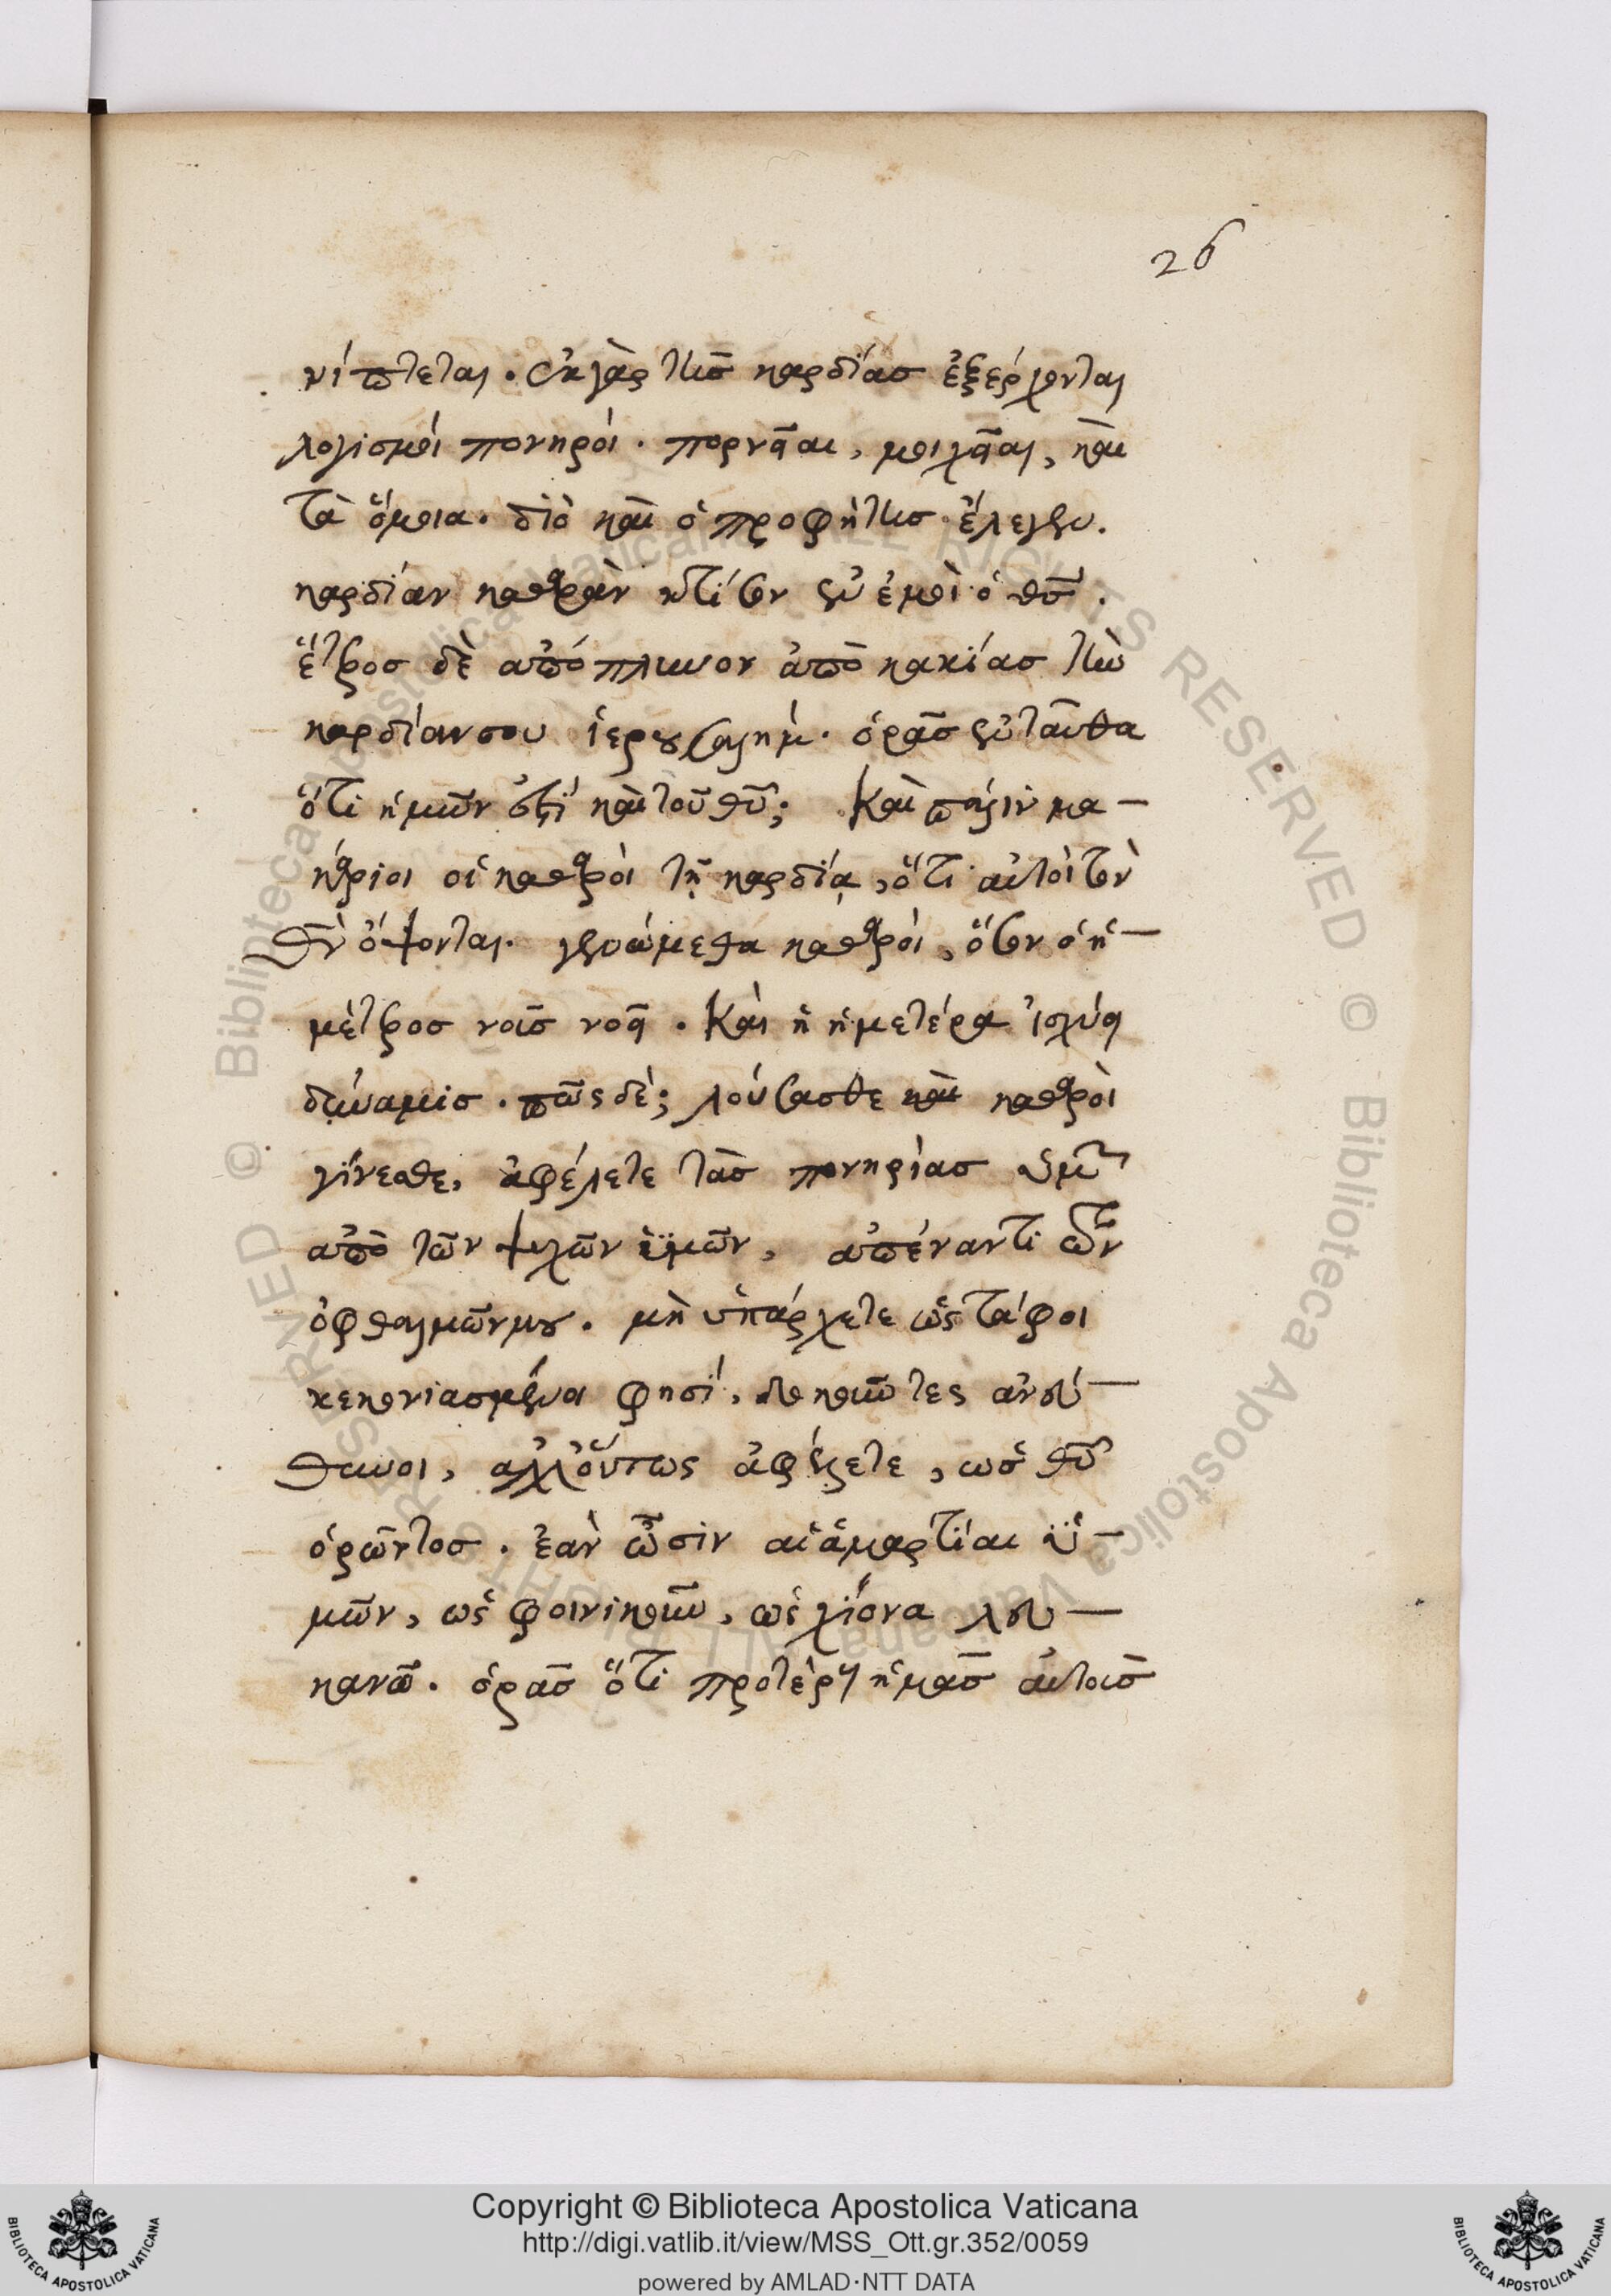 26
νίπτεται· ἐκ γὰρ τῆς καρδίας ἐξέρχονται
λογισμοὶ πονηροί· πορνεῖαι, μοιχεῖαι, καὶ
τὰ ὅμοια· διὸ καὶ ὁ προφήτης ἔλεγεν·
καρδίαν καθαρὰν κτίσον ἐν ἐμοὶ ὁ θς̅·
ἕτερος δὲ ἀπόπλυνον ἀπὸ κακίας τὴν
καρδίαν σου ἱερουσαλήμ· ὁρᾶς ἐνταῦθα
ὅτι ἡμῶν ἐστί καὶ τοῦ θυ̅; Καὶ πάλιν μα–
κάριοι οἱ καθαροὶ τῇ καρδίᾳ, ὅτι αὐτοὶ τὸν
θν̅ ὄψονται· γενώμεθα καθαροί, ὅσον ὁ ἡ–
μέτερος νοῦς νοεῖ· Καὶ ἡ ἡμετέρα ἰσχύει
δύναμις· πῶς δέ; λούσασθε καὶ καθαροὶ
γίνεσθε, ἀφέλετε τὰς πονηρίας ὑμῶν
ἀπὸ τῶν ψυχῶν ὑμῶν, ἀπέναντι τῶν
ὀφθαλμῶν μου· μὴ ὑπάρχετε ὡς τάφοι
κεκονιασμένοι φησί, δοκοῦντες ἀνού–
θυνοι, ἀλλ' οὕτως ἀφέξετε, ὡς θυ̅
ὁρῶντος· ἐὰν ὦσιν αἱ ἁμαρτίαι ὑ–
μῶν, ὡς φοινικοῦν, ὡς χιόνα λευ–
κανῶ· ὁρᾶς ὅτι προτέρου ἡμᾶς αὐτοὺς
Copyright © Biblioteca Apostolica Vaticana
http://digi.vatlib.it/view/MSS_Ott.gr.352/0059
powered by AMLAD·NTT DATA
BIBLIOTECA APOSTOLICA VATICANA
BIBLIOTECA APOSTOLICA VATICANA